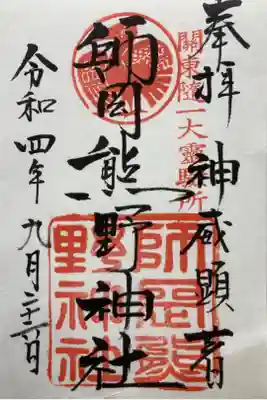 奉拝 神威顕著
關東隨一大靈驗所
師岡熊野神社
師岡熊
野神社
令和四年九月